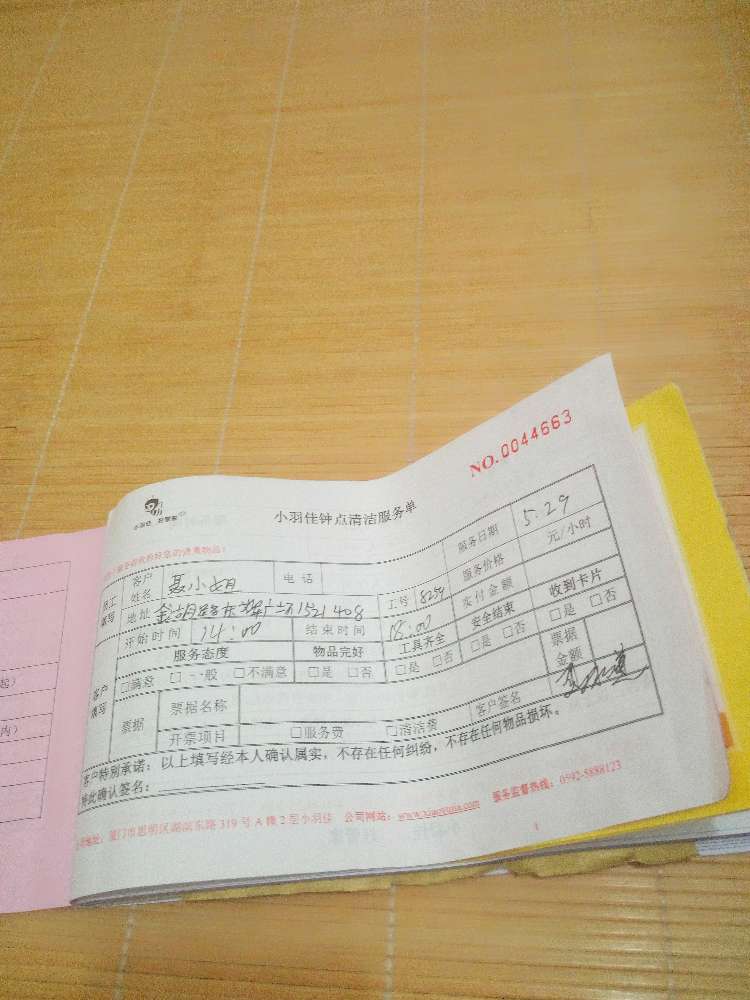 NO.0044663
小羽佳钟点清洁服务单
客户姓名 聂小姐 电话 服务日期 5.29
地址 工号 8259 服务价格 元/小时
开始时间 14:00 结束时间 18:00 实付金额
服务态度 物品完好 工具齐全 安全结束 收到卡片
客户填写 □满意 □一般 □不满意 □是 □否 □是 □否 □是 □否 □是 □否
票据 票据名称 票据金额
开票项目 □服务费 □清洁费 客户签名
客户特别承诺：以上填写经本人确认属实，不存在任何纠纷，不存在任何物品损坏。
特此确认签名：
地址：厦门市思明区湖滨东路319号A幢2层小羽佳 公司网站： 服务监督热线：0592-5888123